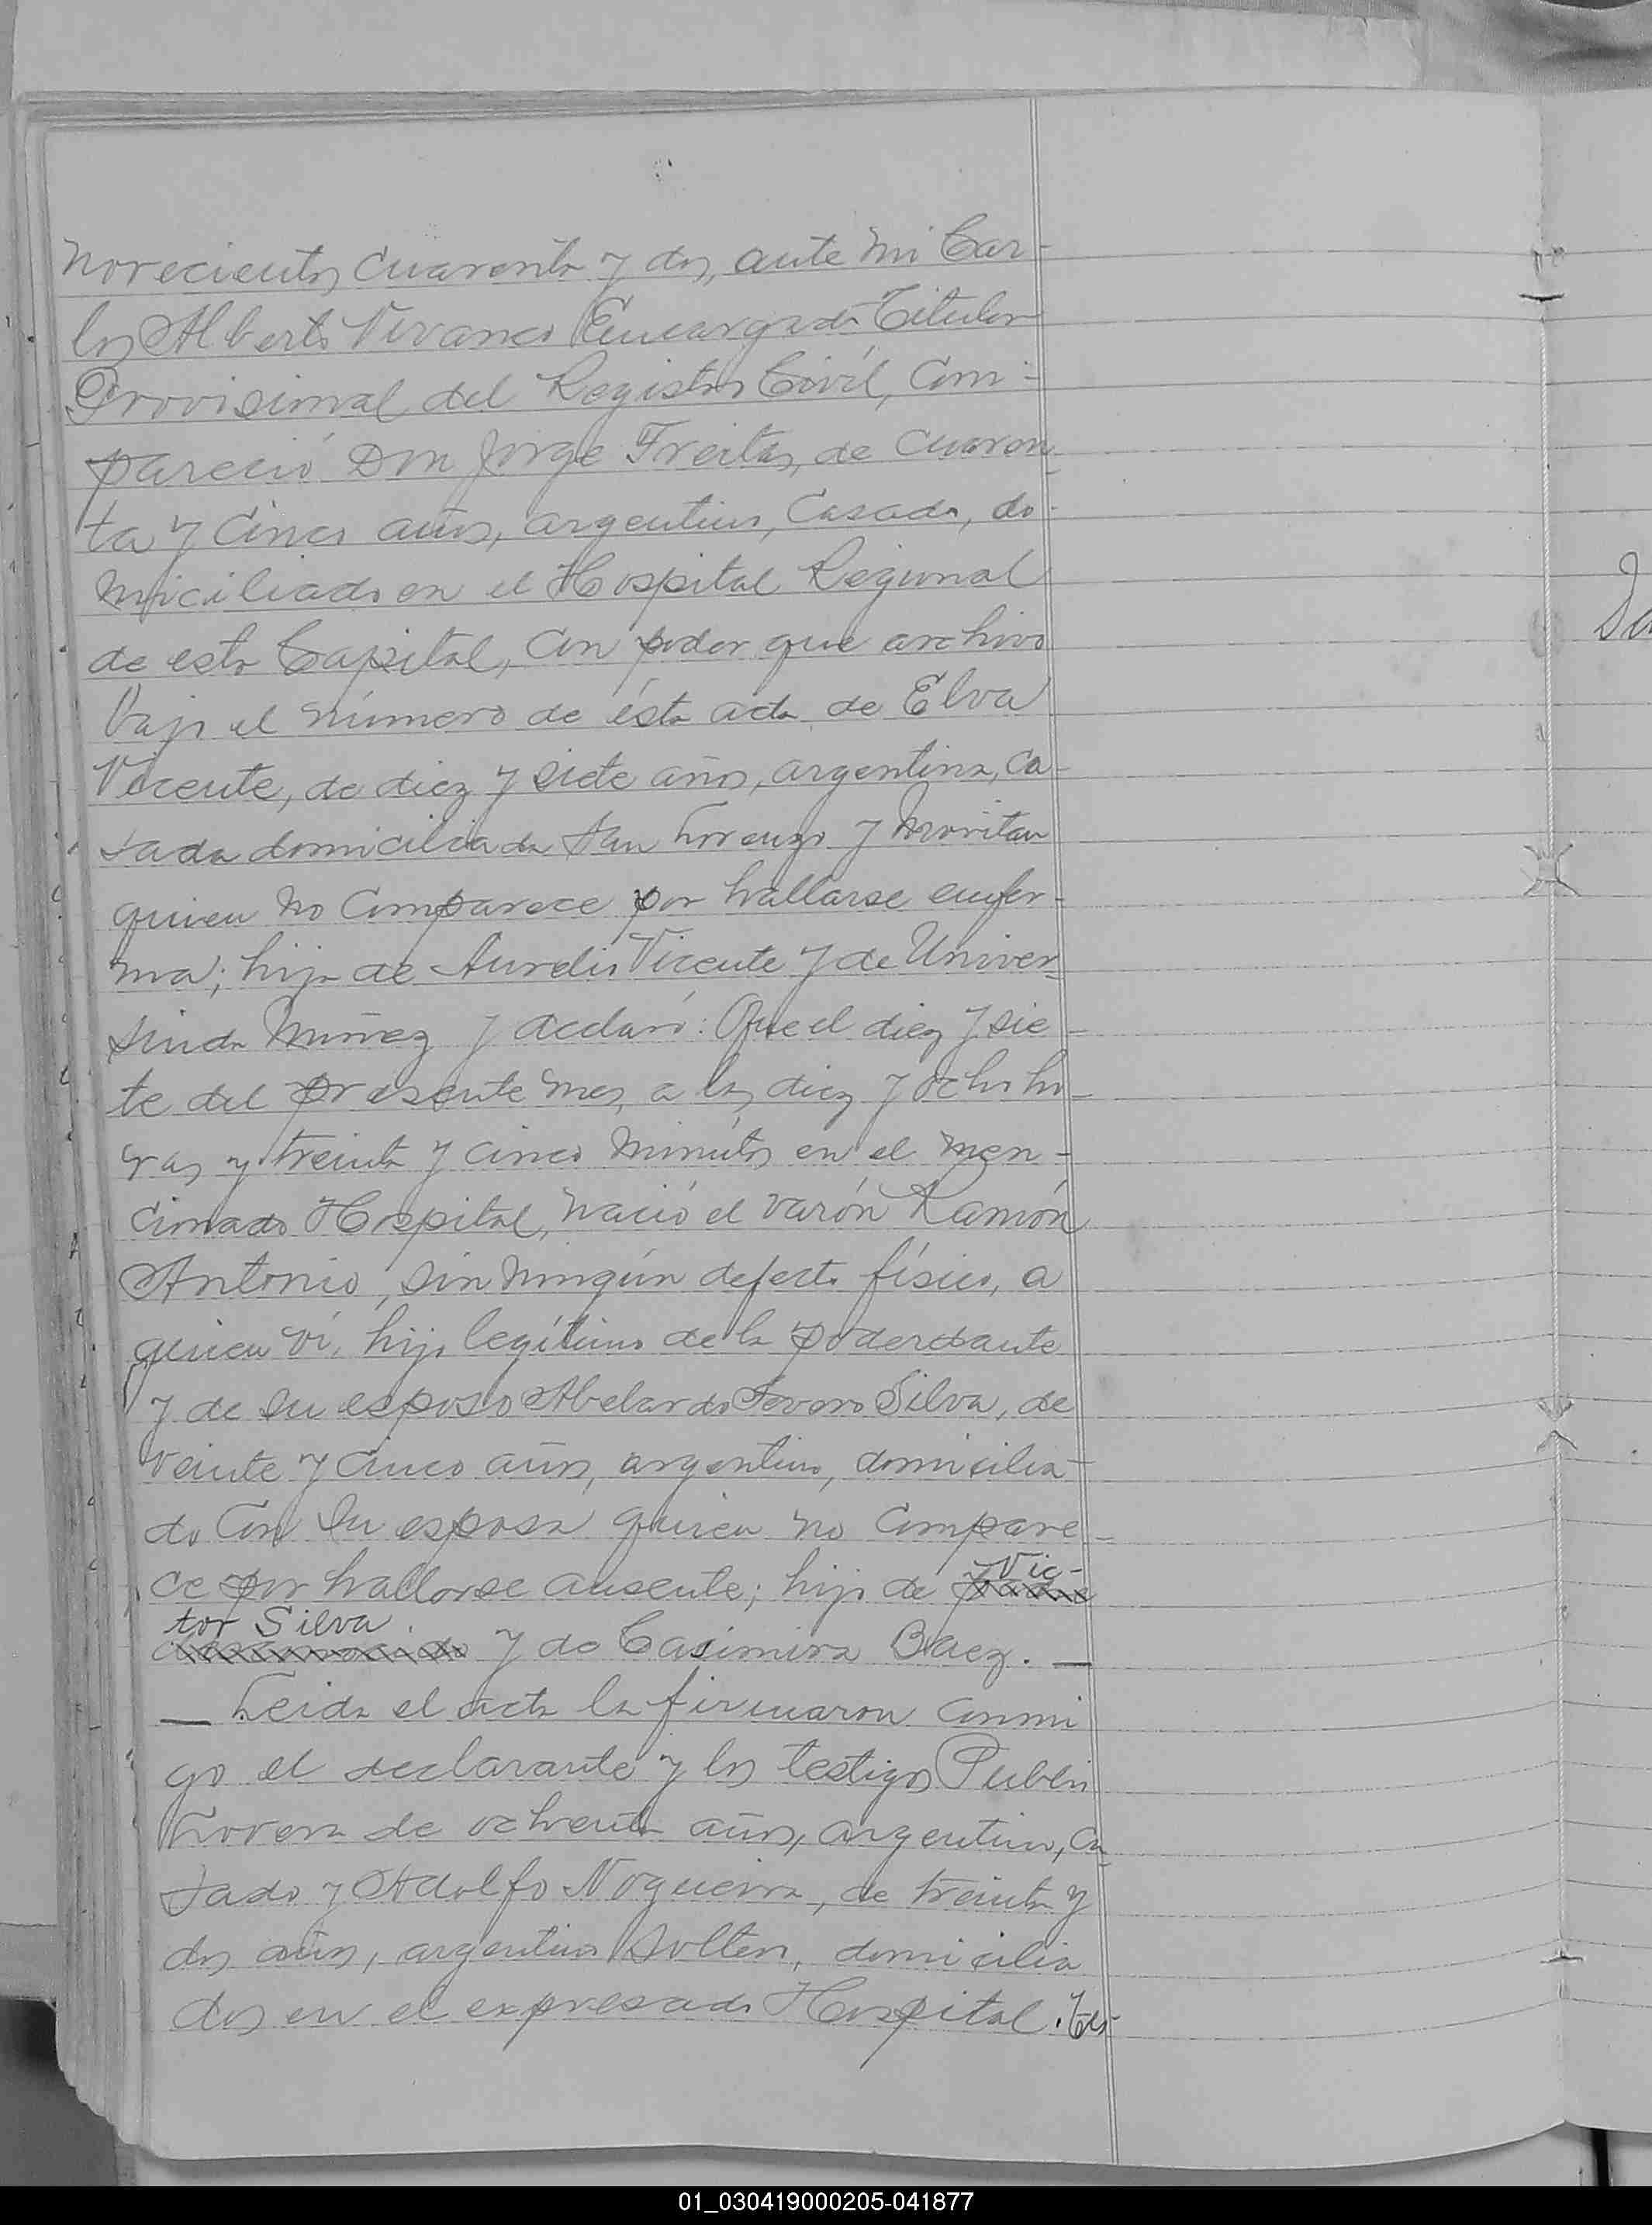 novecientos cuarenta y dos, ante mi Car-
los Alberto Vivanco Encargado Titular
Provisional del Registro Civil, com-
pareció Don Jorge Freitas, de cuaren
ta y cinco años, argentino, casado, do-
miciliado en el Hospital Regional
de esta Capital, con poder que archivo
bajo el número de ésta acta de Elva
Vicente, de diez y siete años, argentina, ca-
sada domiciliada San Lorenzo y
quien no comparece por hallarse enfer-
ma; hija de Aurelio Vicente y de Univer-
sinda Nuñez y declaró: Que el diez y sie-
te del presente mes, a las diez y ocho ho-
ras y treinta y cinco minutos en el men-
cionado Hospital, nació el varón Ramón
Antonio, sin ningún defecto físico, a
quien ví, hijo legítimo de la poderdante
y de su esposo Abelardo Severo Silva, de
veinte y cinco años, argentino, domicilia-
do con su esposa quien no compare-
ce por hallarse ausente; hijo de padre Vic-
tor Silva
desconocido y de Casimira Baez. —
— Leida el acta la firmaron conmi
go el declarante y los testigos Ruben
de ochenta años, argentino, ca-
sado y Adolfo Nogueira, de treinta y
dos años, argentino soltero, domicilia
dos en el expresado Hospital.
01_030419000205-041877